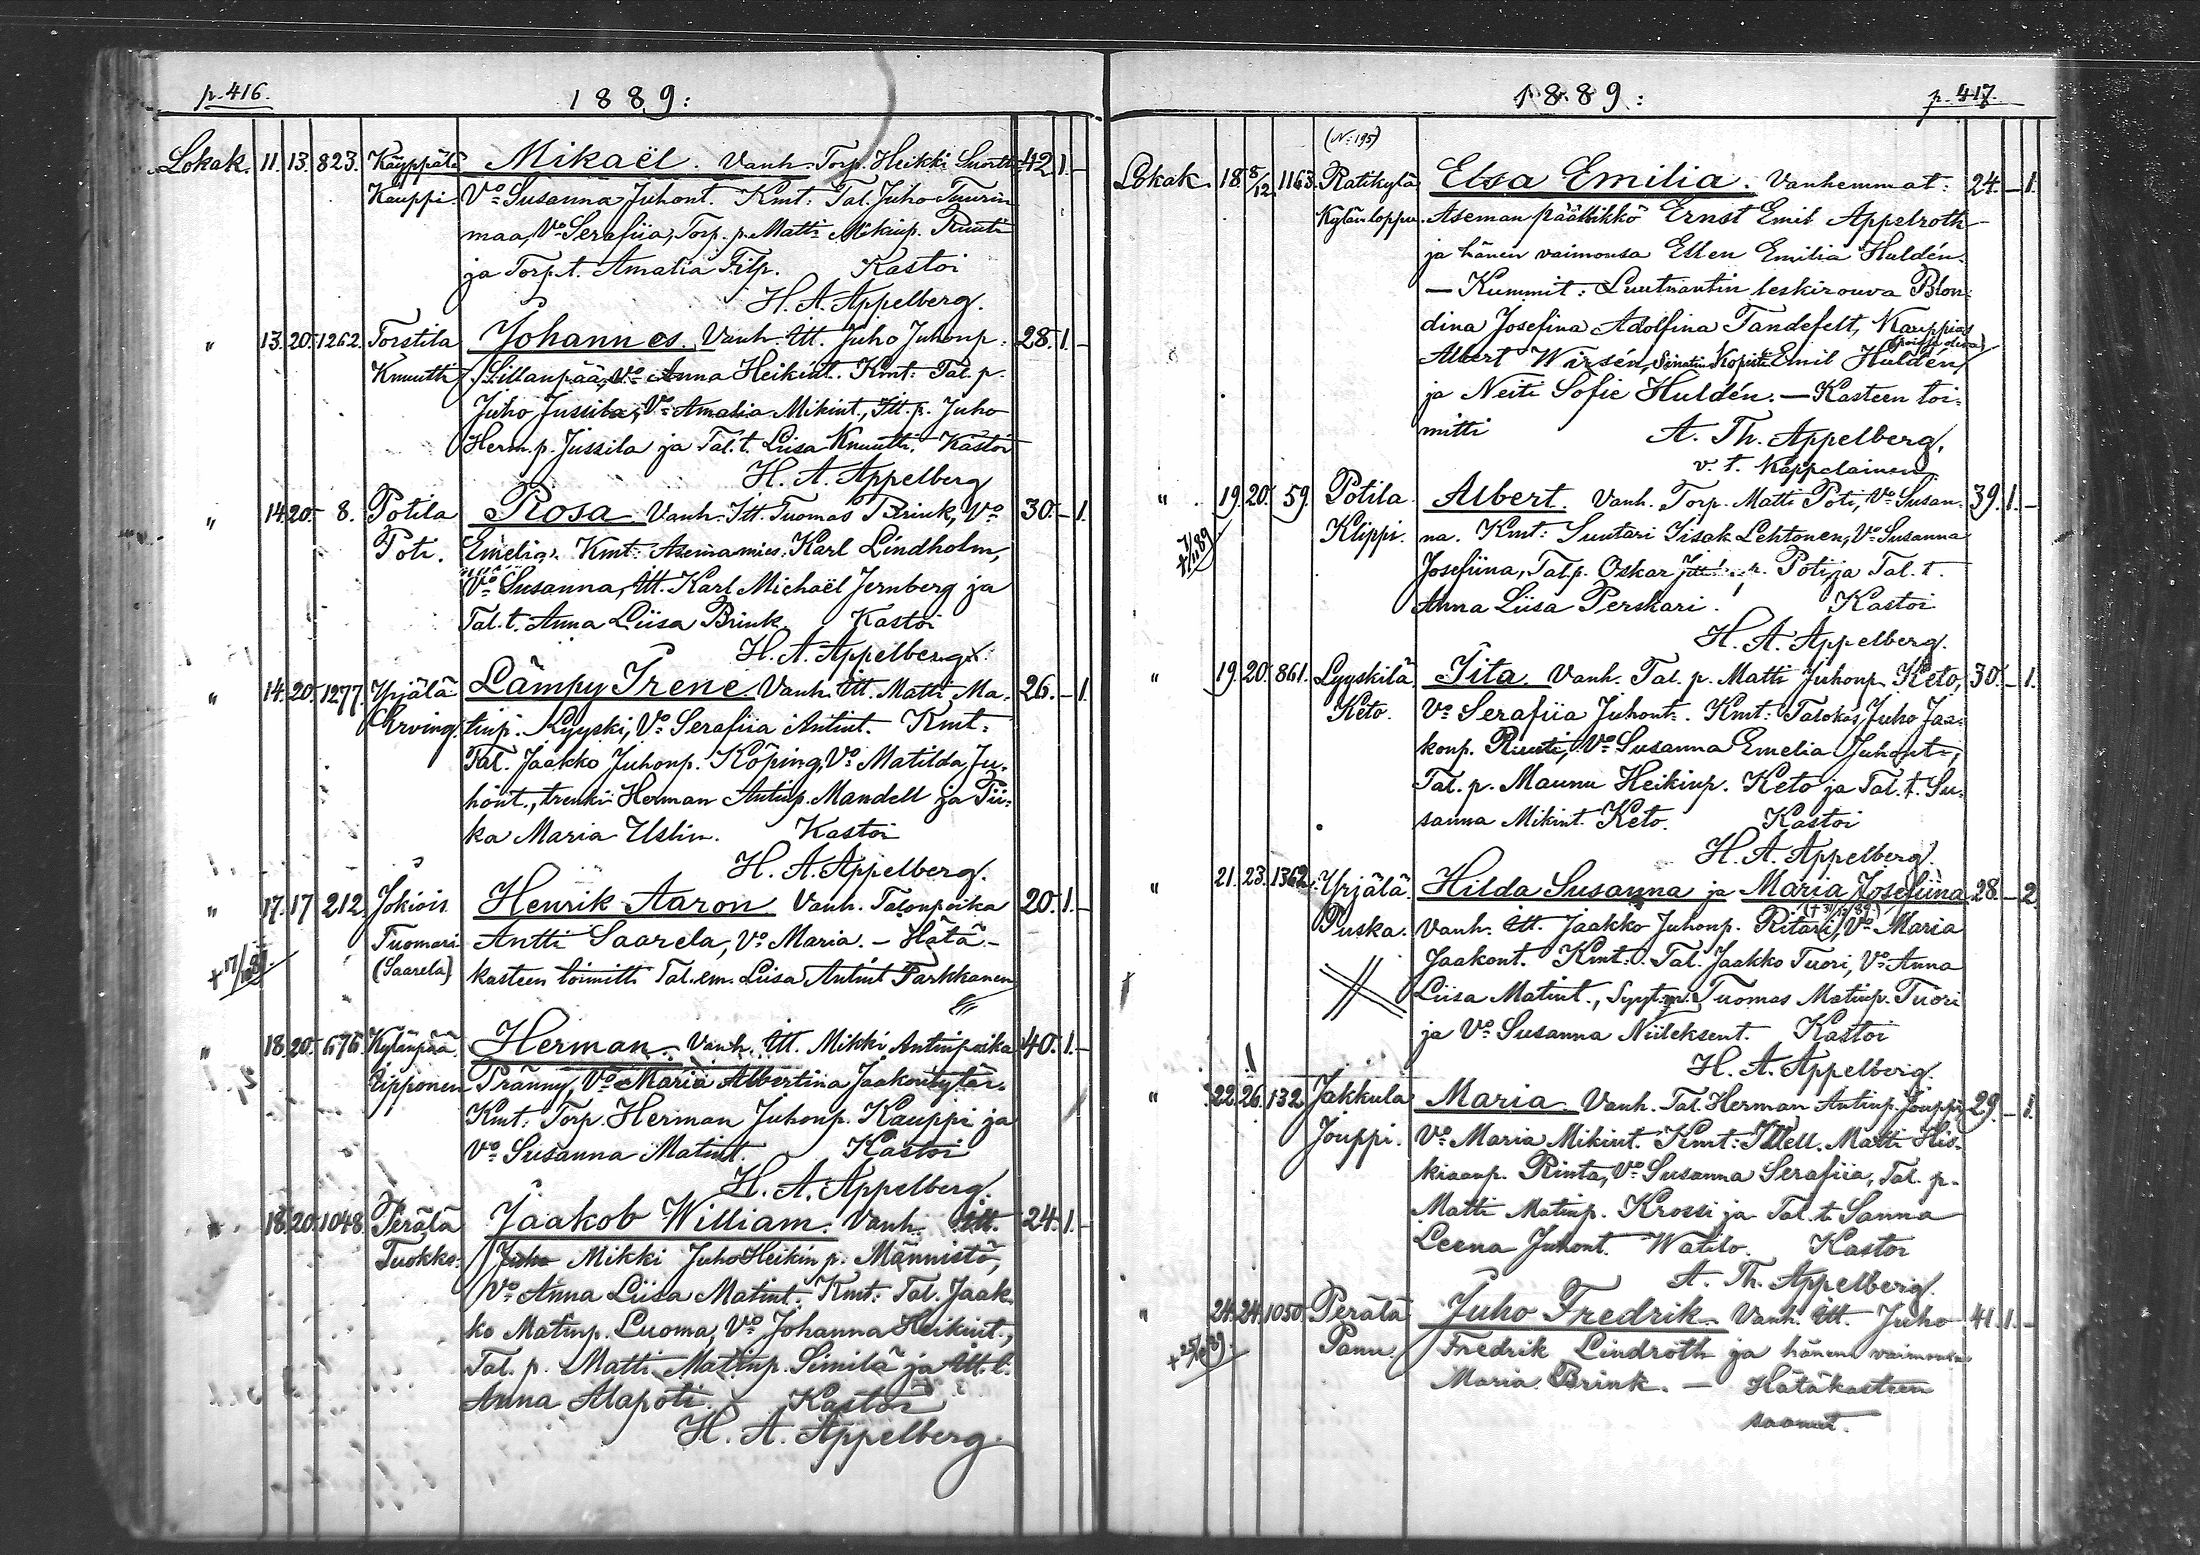 p. 416.
1889:
Lokak. 11. 13. 823. Käyppälä Mikaël. Vanh. Torp. Heikki 42 1. -
Kauppi. Vo Susanna Juhont. Kmt: Tal. Juho Tuurin
maa, Vo Serafiia, Torp. p. Matti Mikinp. Ruuti
ja Torp. t. Amalia Filp. Kastoi
H. A. Appelberg.
" 13. 20. 1262. Torstila Johannes. Vanh. Itt. Juho Juhonp. 28. 1. -
Knuutti Sillanpää, Vo Anna Heikint. Kmt: Tal. p.
Juho Jussila, Vo Amalia Mikint., Itt. p. Juho
Herm. p. Jussila ja Tal. t. Liisa Knuutti. Kastoi
H. A. Appelberg
" 14. 20. 8. Potila Rosa Vanh. Itt. Tuomas Brink, Vo 30. - 1.
Poti. Emelia. Kmt: Asemamies Karl Lindholm,
Vo Susanna, Itt. Karl Michaël Jernberg ja
Tal. t. Anna Liisa Brink. Kastoi
H. A. Appelberg.
" 14. 20. 1277. Yrjälä Lämpy Irene. Vanh. Itt. Matti Ma- 26. - 1.
Erving. tinp. Kyyski, Vo Serafiia Antint. Kmt:
Tal. Jaakko Juhonp. Köping, Vo Matilda Ju-
hont., trenki Herman Antinp. Mandell ja Pii-
ka Maria Uslin. Kastoi
H. A. Appelberg.
" 17. 17 212. Jokiois Henrik Aaron Vanh. Talonpoika 20. 1. -
Tuomari Antti Saarela, Vo Maria. - Hätä-
(Saarela) kasteen toimitti Tal. em. Liisa Antint Tarkkanen
" 18. 20. 676. Kylänpää Herman. Vanh. Itt. Mikki Antinpoika 40. 1. -
Pipponen Pränny, Vo Maria Albertina Jaakontytär.
Kmt: Torp. Herman Juhonp. Kauppi ja
Vo Susanna Matint. Kastoi
H. A. Appelberg.
" 18. 20. 1048. Perälä Jaakob William. Vanh. Itt. 24. 1. -
Tuokko. Juho Mikki Juho Heikin p. Männistö,
Vo Anna Liisa Matint. Kmt: Tal. Jaak-
ko Matinp. Luoma, Vo Johanna Heikint.,
Tal. p. Matti Matinp. Similä ja Itt. t.
Anna Alapoti. Kastoi
H. A. Appelberg.
1889:
p. 417.
(N: 195)
Lokak. 18. 8/12 1163. Ratikylä Elsa Emilia. Vanhemmat: 24. - 1.
Kylänloppu. Aseman päällikkö Ernst Emil Appelroth
ja hänen vaimonsa Ellen Emilia Huldén.
- Kummit: Luutnantin leskirouva Blon-
dina Josefina Adolfina Tandefelt, Kauppias
Albert Wirsén, Senatin Kopisti Emil Huldén,
(poissa oleva)
ja Neiti Sofie Huldén. - Kasteen toi-
mitti A. Th. Appelberg,
v. t. Kappelainen
" 19. 20. 59. Potila Albert. Vanh. Torp. Matti Poti, Vo Susan- 39. 1. -
Klippi. na. Kmt: Suutari Iisak Lehtonen, Vo Susanna
Josefiina, Tal. p. Oskar p. Poti, ja Tal. t.
Anna Liisa Perskari. Kastoi
H. A. Appelberg.
" 19. 20. 861. Lyyskilä Iita. Vanh. Tal. p. Matti Juhonp. Keto, 30. - 1.
Keto. Vo Serafiia Juhont. Kmt: Talokas, Juho Jaa-
konp. Ruuti, Vo Susanna Emelia Juhont.,
Tal. p. Maunu Heikinp. Keto ja Tal. t. Su-
sanna Mikint. Keto. Kastoi
H. A. Appelberg.
" 21. 23. 1362. Yrjälä Hilda Susanna ja Maria Josefiina 28. - 2.
Puska. Vanh. Itt. Jaakko Juhonp. Ritari, Vo Maria
Jaakont. Kmt: Tal. Jaakko Tuori, Vo Anna
Liisa Matint., Syyt. m. Tuomas Matinp. Tuori
ja Vo Susanna Niileksent. Kastoi
H. A. Appelberg.
" 22. 26. 132. Jakkula Maria. Vanh. Tal. Herman Antinp. Jouppi 29. - 1.
Jouppi. Vo Maria Mikint. Kmt: Itsell. Matti His-
kiaanp. Rinta, Vo Susanna Serafiia, Tal. p.
Matti Matinp. Krossi ja Tal. t. Sanna
Leena Juhont. Watilo. Kastoi
A. Th. Appelberg.
" 24. 24. 1050. Perälä Juho Fredrik. Vanh. Itt. Juho 41. 1. -
Panu Fredrik Lindroth ja hänen vaimonsa
Maria Brink. - Hätäkasteen
saanut.